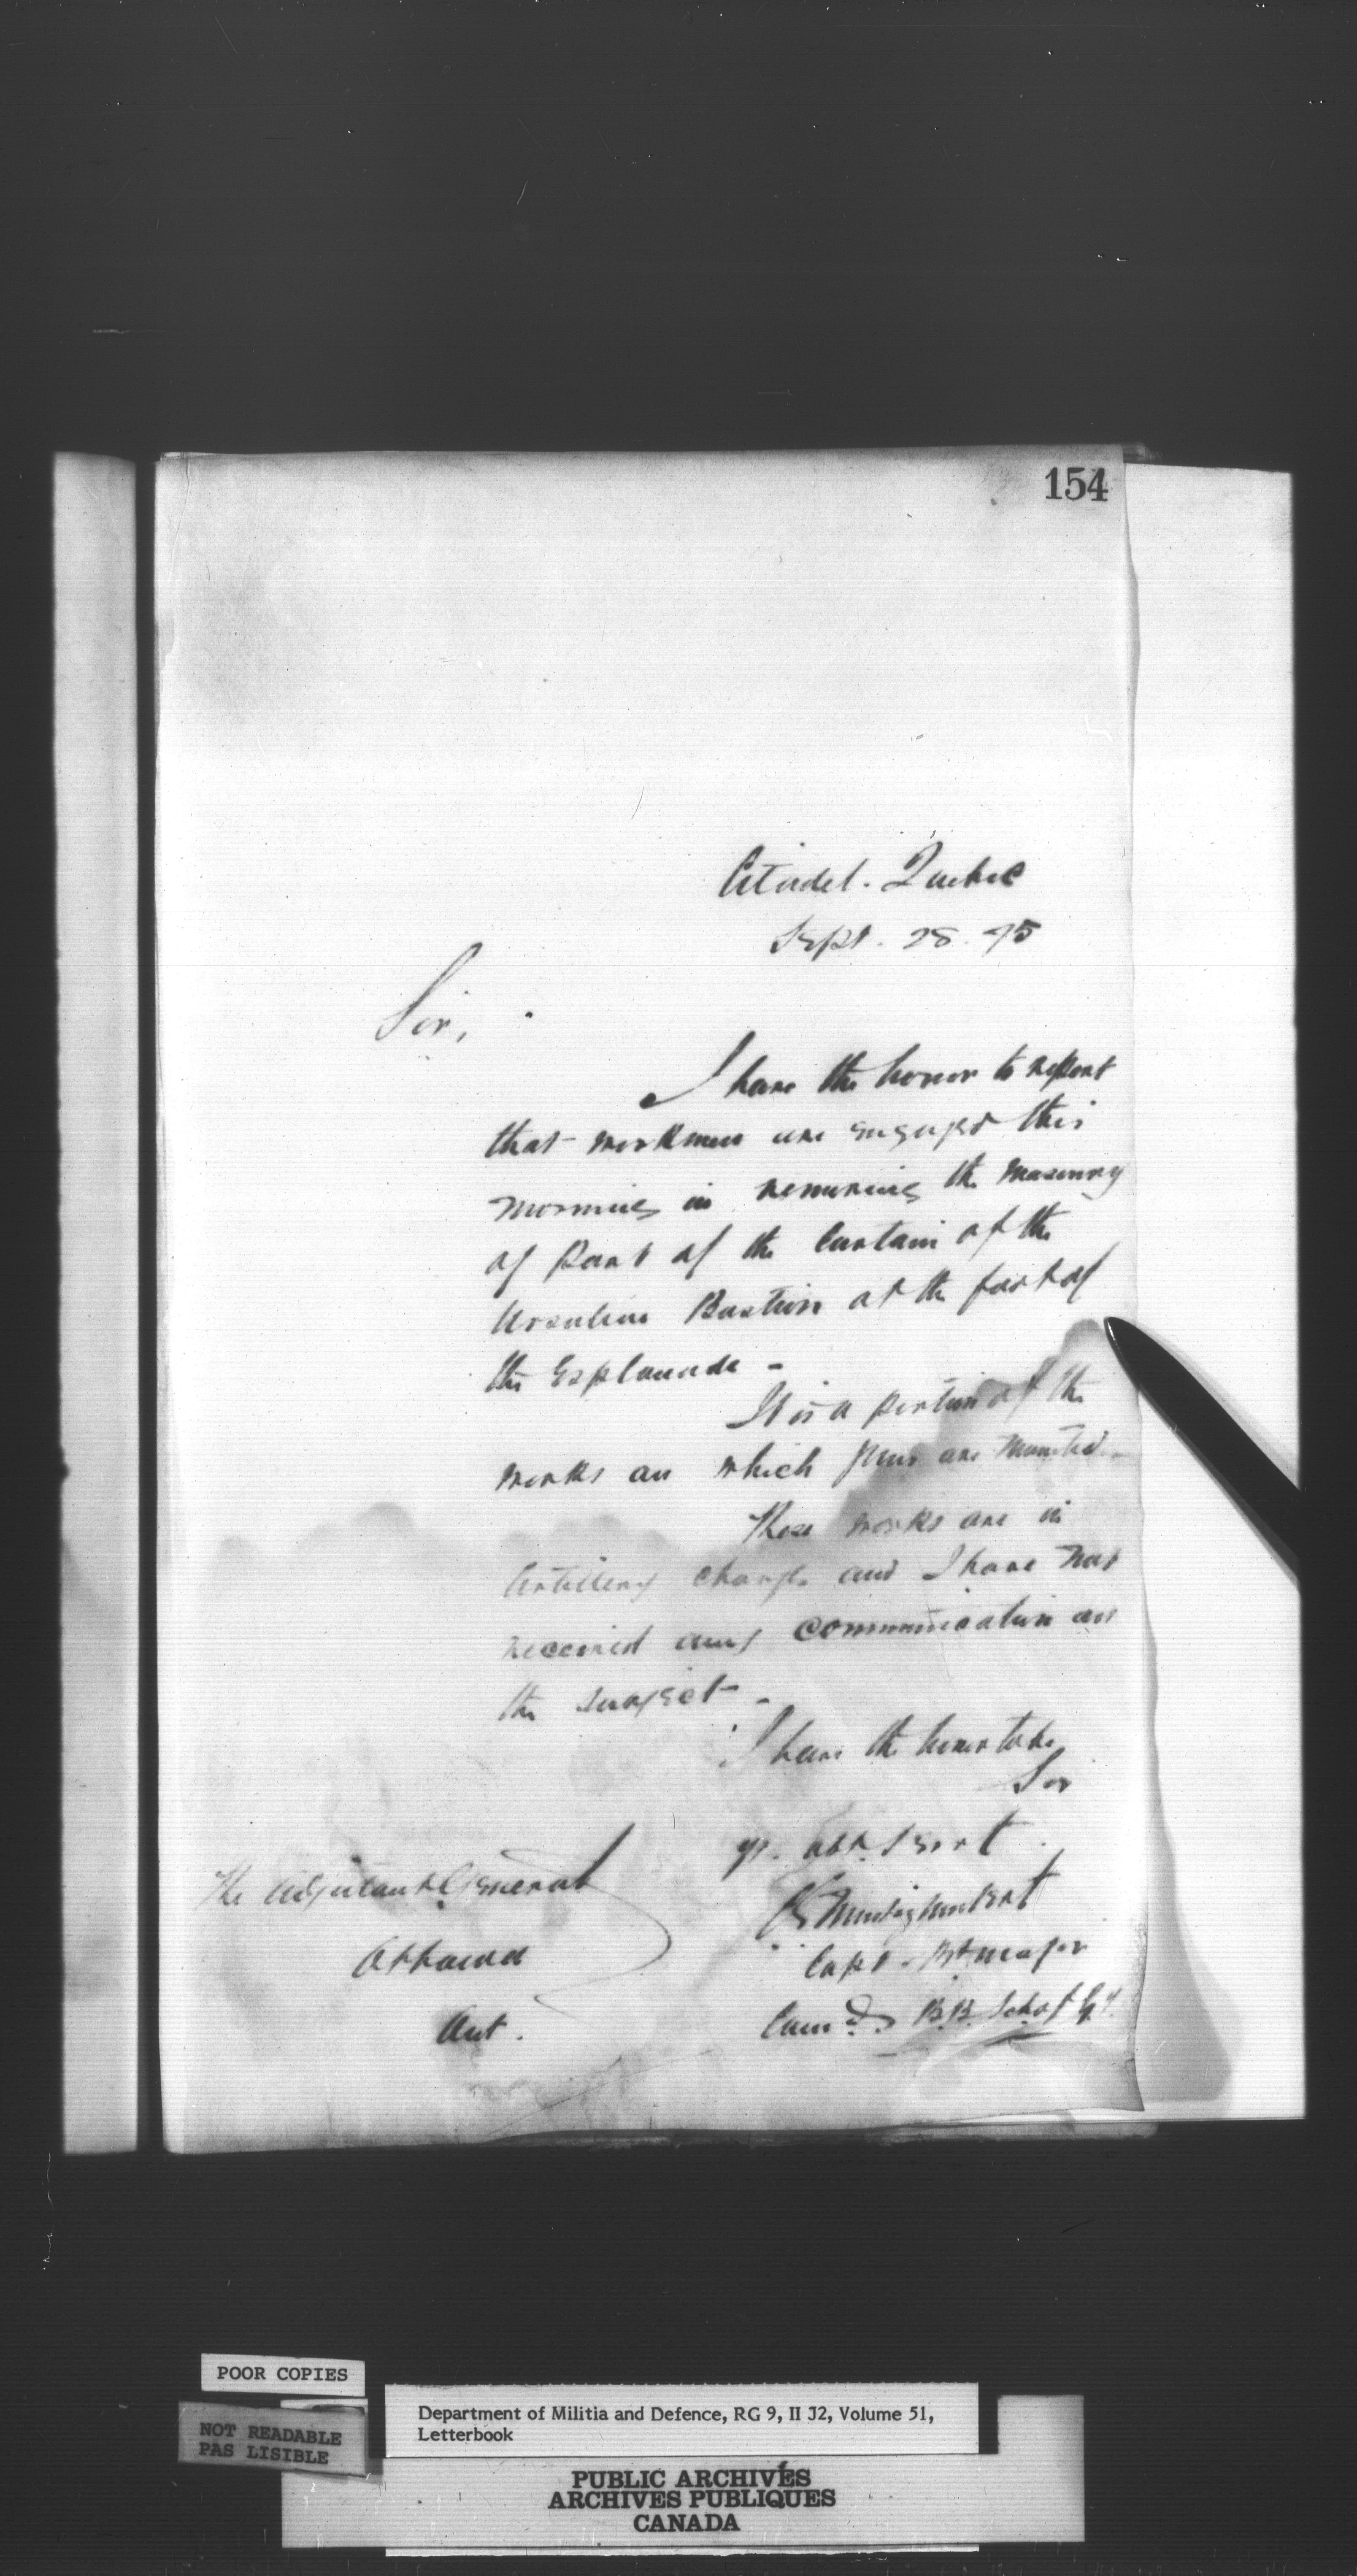 154
Citadel. Quebec
Sept. 28. 75
Sir,
I have the honor to report
that workmen are engaged this
morning in removing the masonry
of part of the Curtain of the
Ursuline Bastion at the foot of
the Esplanade -
It is a portion of the
works on which guns are mounted -
These works are in
Artillery charge and I have not
received any communication on
the subject -
I have the honor to be
Sir
yr. obt. Servt
Capt. Bt Major
Comdg B.B. Sch of Gy.
The Adjutant General
Ottawa
Ont.
POOR COPIES
NOT READABLE
PAS LISIBLE
Department of Militia and Defence, RG 9, II J2, Volume 51,
Letterbook
PUBLIC ARCHIVES
ARCHIVES PUBLIQUES
CANADA